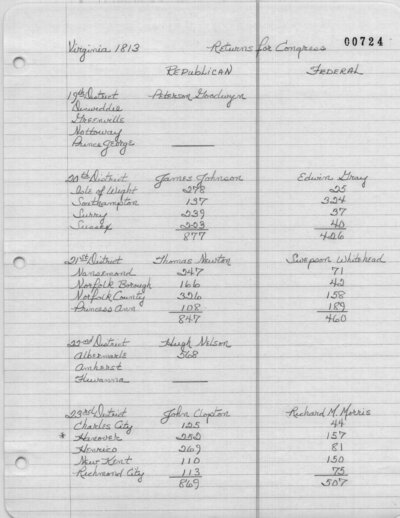 00724
Virginia 1813 Returns for Congress
REPUBLICAN FEDERAL
19th District Peterson Goodwyn
Dinwiddie
Greenville
Nottoway
Prince George
20th District James Johnson Edwin Gray
Isle of Wight 278 25
Southampton 137 324
Surry 239 37
Sussex 223 40
877 426
21st District Thomas Newton Swepson Whitehead
Nansemond 247 71
Norfolk Borough 166 42
Norfolk County 326 158
Princess Ann 108 189
847 460
22nd District Hugh Nelson
Albemarle 568
Amherst
Fluvanna
23rd District John Clopton Richard M. Morris
Charles City 125 44
* Hanover 252 157
Henrico 269 81
New Kent 110 150
Richmond City 113 75
869 507